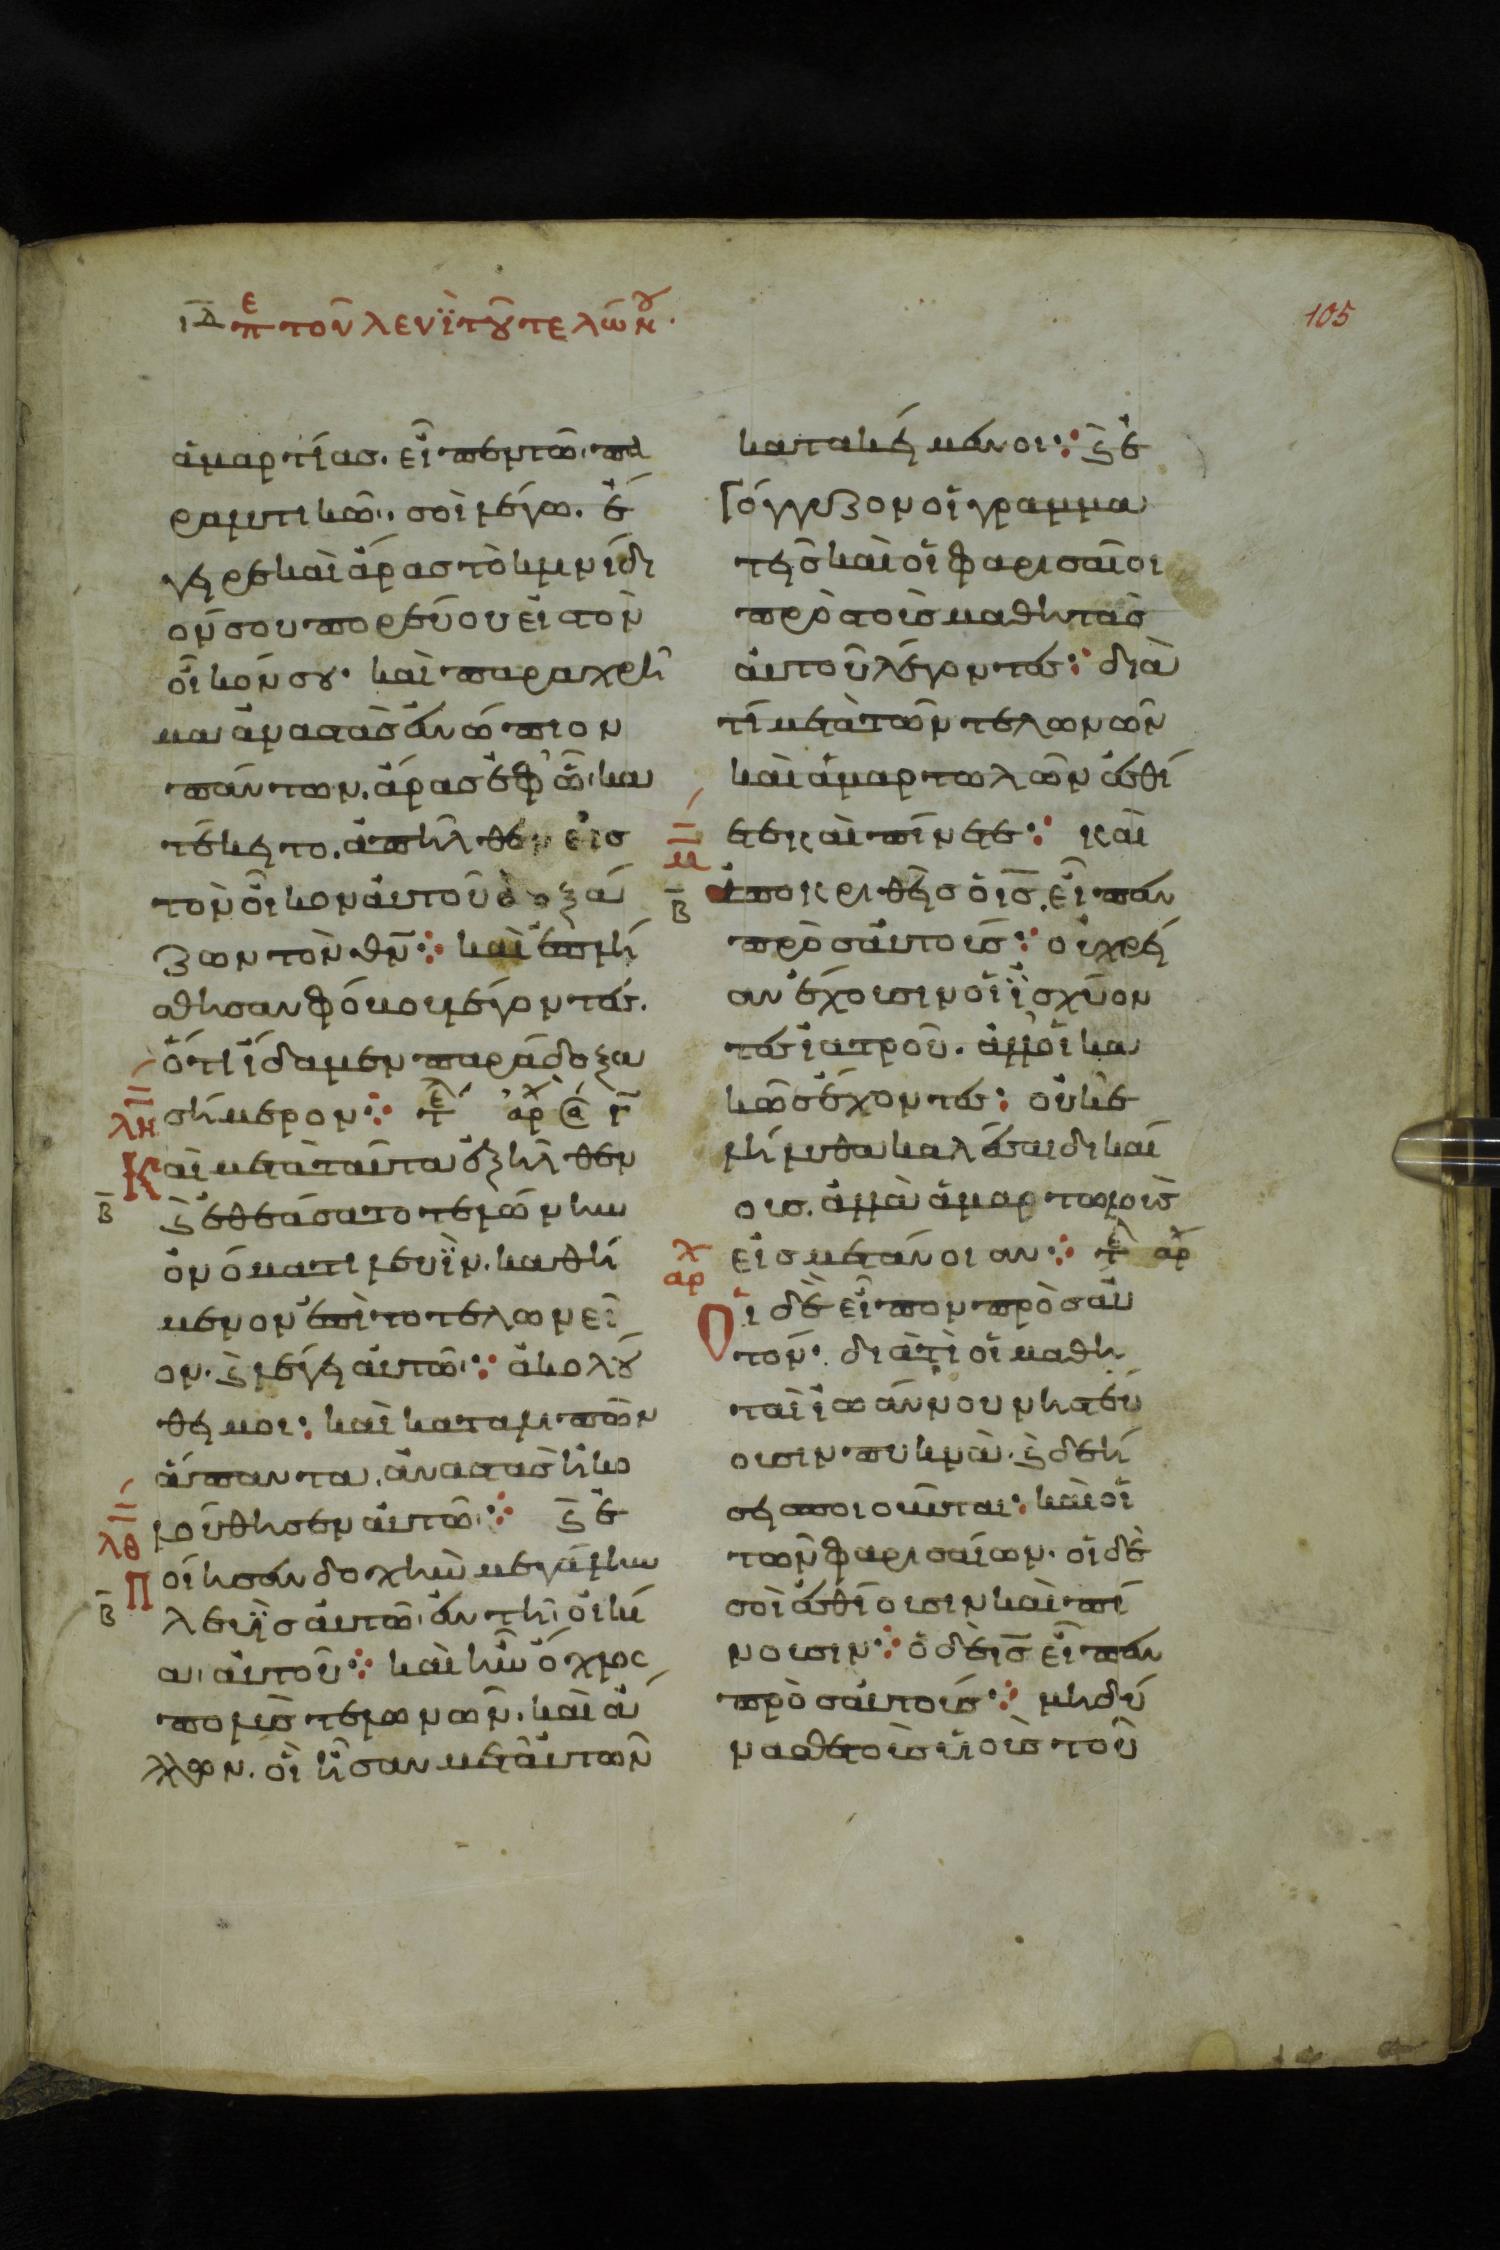 ΙΔ πε τον λευῒ του τελώνου·
105
ἁμαρτίας. εἶπεν τῶ πα
ραλυτικῶ· σοὶ λέγω. ἔ
γειρε καὶ ἄρας τὸ κλινίδι
όν σου πορεύου εἰς τὸν
οἶκόν σου· καὶ παραχρῆ
μα ἀναστὰς ἐνώπιον
πάντων. ἄρας ἐφ' ᾧ κα
τέκειτο. ἀπῆλθεν εἰς
τὸν οἶκον αὐτοῦ δοξά
ζων τὸν θν̄: καὶ ἐπλή
σθησαν φόβου λέγοντες.
ὅτι ἴδαμεν παράδοξα
σήμερον: τελ ἀρχ
λη
Καὶ μετὰ ταῦτα ἐξῆλθεν
β
ϗ ἐθεάσατο τελώνην
ὀνόματι λευῒν. καθή
μενον ἐπὶ τὸ τελωνεῖ
ον. ϗ λέγει αὐτῶ: ἀκολού
θει μοι: καὶ καταλιπὼν
ἅπαντα. ἀναστὰς ἠκο
λούθησεν αὐτῶ: ϗ ἐ
λθ
Ποίησεν δοχὴν μεγάλην
β
λευῒς αὐτῶ ἐν τῆ οἰκί
α αὐτοῦ: καὶ ἦν ὄχλος
πολὺς τελωνῶν. καὶ ἄ
λλων. οἳ ἦσαν μετ' αὐτῶν
κατακείμενοι: ϗ ἐ
γόγγυζον οἱ γραμμα
τεῖς καὶ οἱ φαρισαῖοι
πρὸς τοὺς μαθητὰς
αὐτοῦ λέγοντες: διὰ
τί μετὰ τῶν τελωνῶν
καὶ ἁμαρτωλῶν ἐσθί
ετε καὶ πίνετε: καὶ
μ
β
ἀποκριθεὶς ὁ ις̄. εἶπεν
πρὸς αὐτούς: οὐ χρεί
αν ἔχουσιν οἱ ἰσχύον
τες ἰατροῦ. ἀλλ' οἱ κα
κῶς ἔχοντες: οὐκ ἐ
λήλυθα καλέσαι δικαί
ους. ἀλλὰ ἁμαρτωλοὺς
εἰς μετάνοιαν: τελ ἀρχ
αρχ
Οἱ δὲ εἶπον πρὸς αὐ
τόν· διὰ τὶ οἱ μαθη
ταὶ ἰωάννου νηστεύ
ουσιν πυκνὰ. ϗ δεή
σεις ποιοῦνται: καὶ οἱ
τῶν φαρισαίων. οἱ δὲ
σοὶ ἐσθίουσιν καὶ πί
νουσιν: ὁ δὲ ις̄ εἶπεν
πρὸς αὐτούς: μὴ δύ
νασθε τοὺς υἱοὺς τοῦ